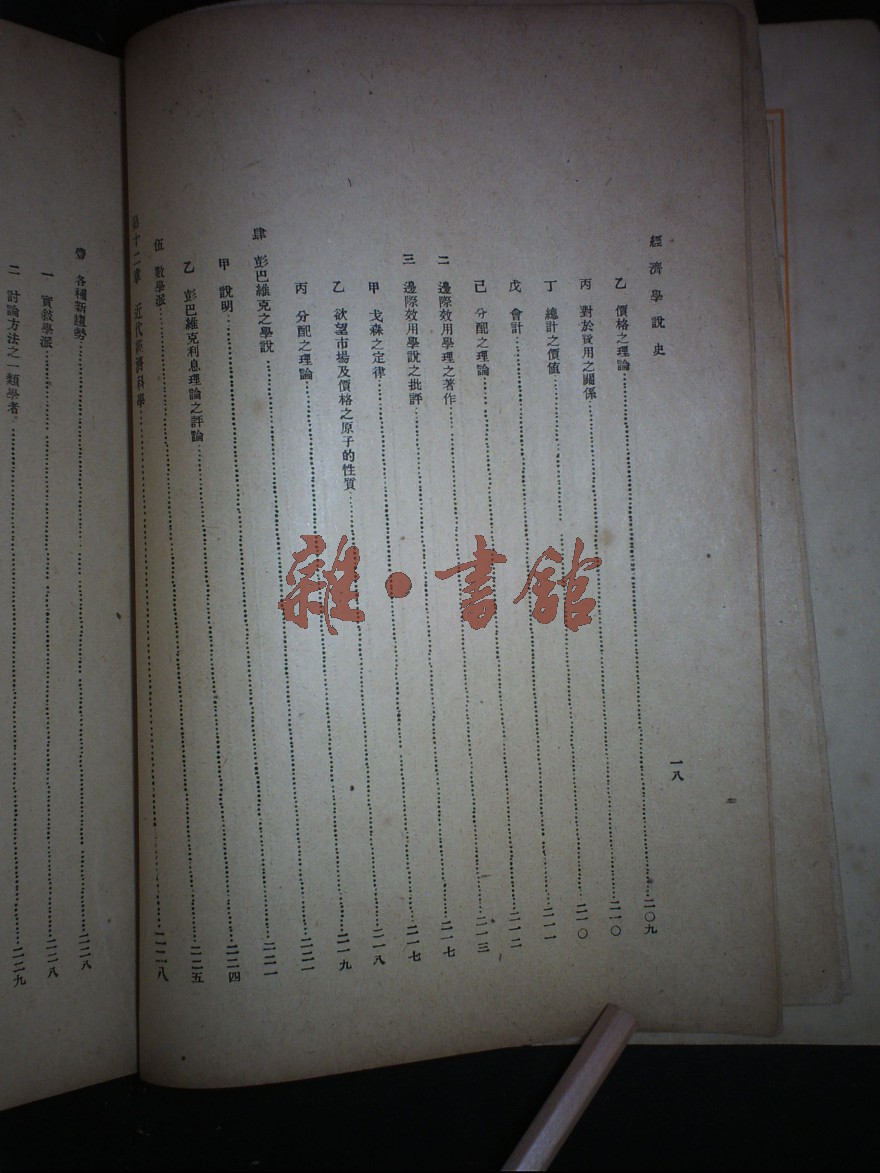 經濟學說史 一八
乙 價格之理論……二〇九
丙 對於費用之關係……二一〇
丁 總計之價值……二一〇
戊 會計……二一一
己 分配之理論……二一二
二 邊際效用學理之著作……二一三
三 邊際效用學說之批評……二一七
甲 戈森之定律……二一七
乙 欲望市場及價格之原子的性質……二一八
丙 分配之理論……二一九
肆 彭巴維克之學說……二二一
甲 說明……二二一
乙 彭巴維克利息理論之評論……二二四
伍 數學派……二二五
第十二章 近代經濟科學……二二八
壹 各種新趨勢……二二八
一 學派……二二八
二 討論方法之一類學者……二二九
雜·書館